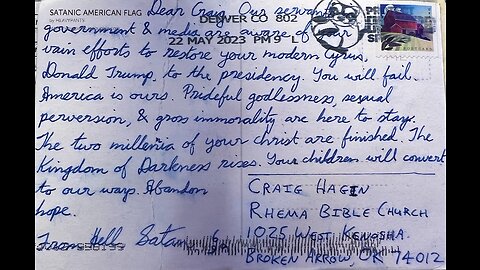 SATANIC AMERICAN FLAG
by HEAVYPANTS
Dear Craig, Our servants in
DENVER CO 802
government & media are aware of your
22 MAY 2023 PM 9
vain efforts to restore your modern Cyrus,
Donald Trump, to the presidency. You will fail.
America is ours. Prideful godlessness, sexual
perversion, & gross immorality are here to stay.
The two millenia of your christ are finished. The
Kingdom of Darkness rises. Your children will convert
to our ways. Abandon
hope.
From Hell, Satan
CRAIG HAGIN
RHEMA BIBLE CHURCH
1025 WEST KENOSHA
BROKEN ARROW, OK 74012